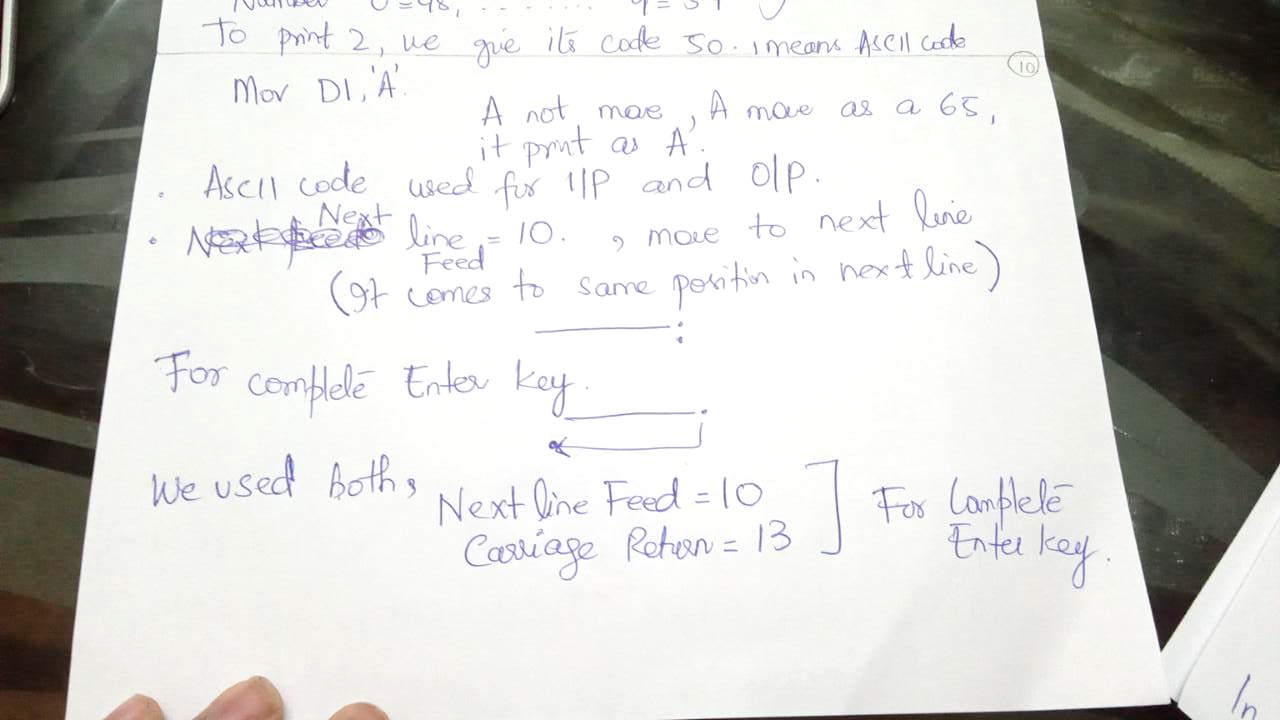 Number 0=48, ........ 9=57
To print 2, we give its code 50. , means ASCII code
10
Mov Dl, 'A'.
A not move, A move as a 65,
it print as A'.
. ASCII code used for I/P and O/P.
Next
. line = 10. , move to next line
Feed
(It comes to same position in next line)
For complete Enter key.
We used both,
Next line Feed = 10
Carriage Return = 13
For Complete
Enter key.
In